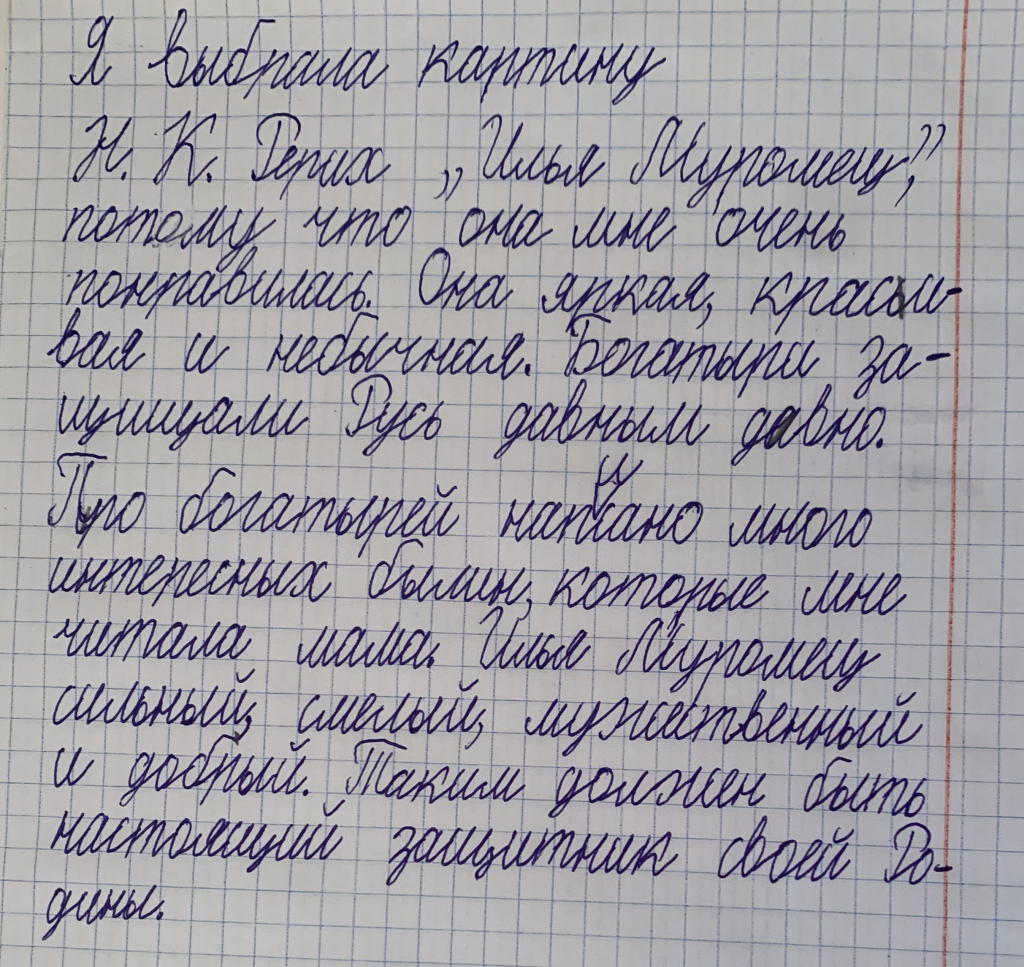 Я выбрала картину
Н. К. Рерих „Илья Муромец”,
потому что она мне очень
понравилась. Она яркая, краси-
вая и необычная. Богатыри за-
щищали Русь давным давно.
Про богатырей написано много
интересных былин, которые мне
читала мама. Илья Муромец
сильный, смелый, мужественный
и добрый. Таким должен быть
настоящий защитник своей Ро-
дины.